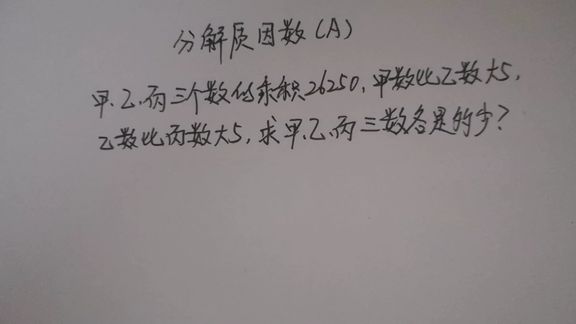 分解质因数(A)
甲、乙、丙三个数的乘积26250,甲数比乙数大5,
乙数比丙数大5,求甲、乙、丙三数各是多少?